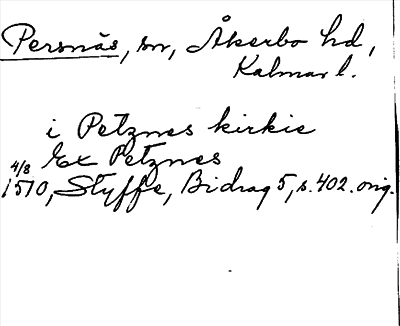 Persnäs, sn, Åkerbo hd,
Kalmar l.
i Petznes kirkie
Ex Petznes
4/8
1510, Styffe, Bidrag 5, s. 402. orig.